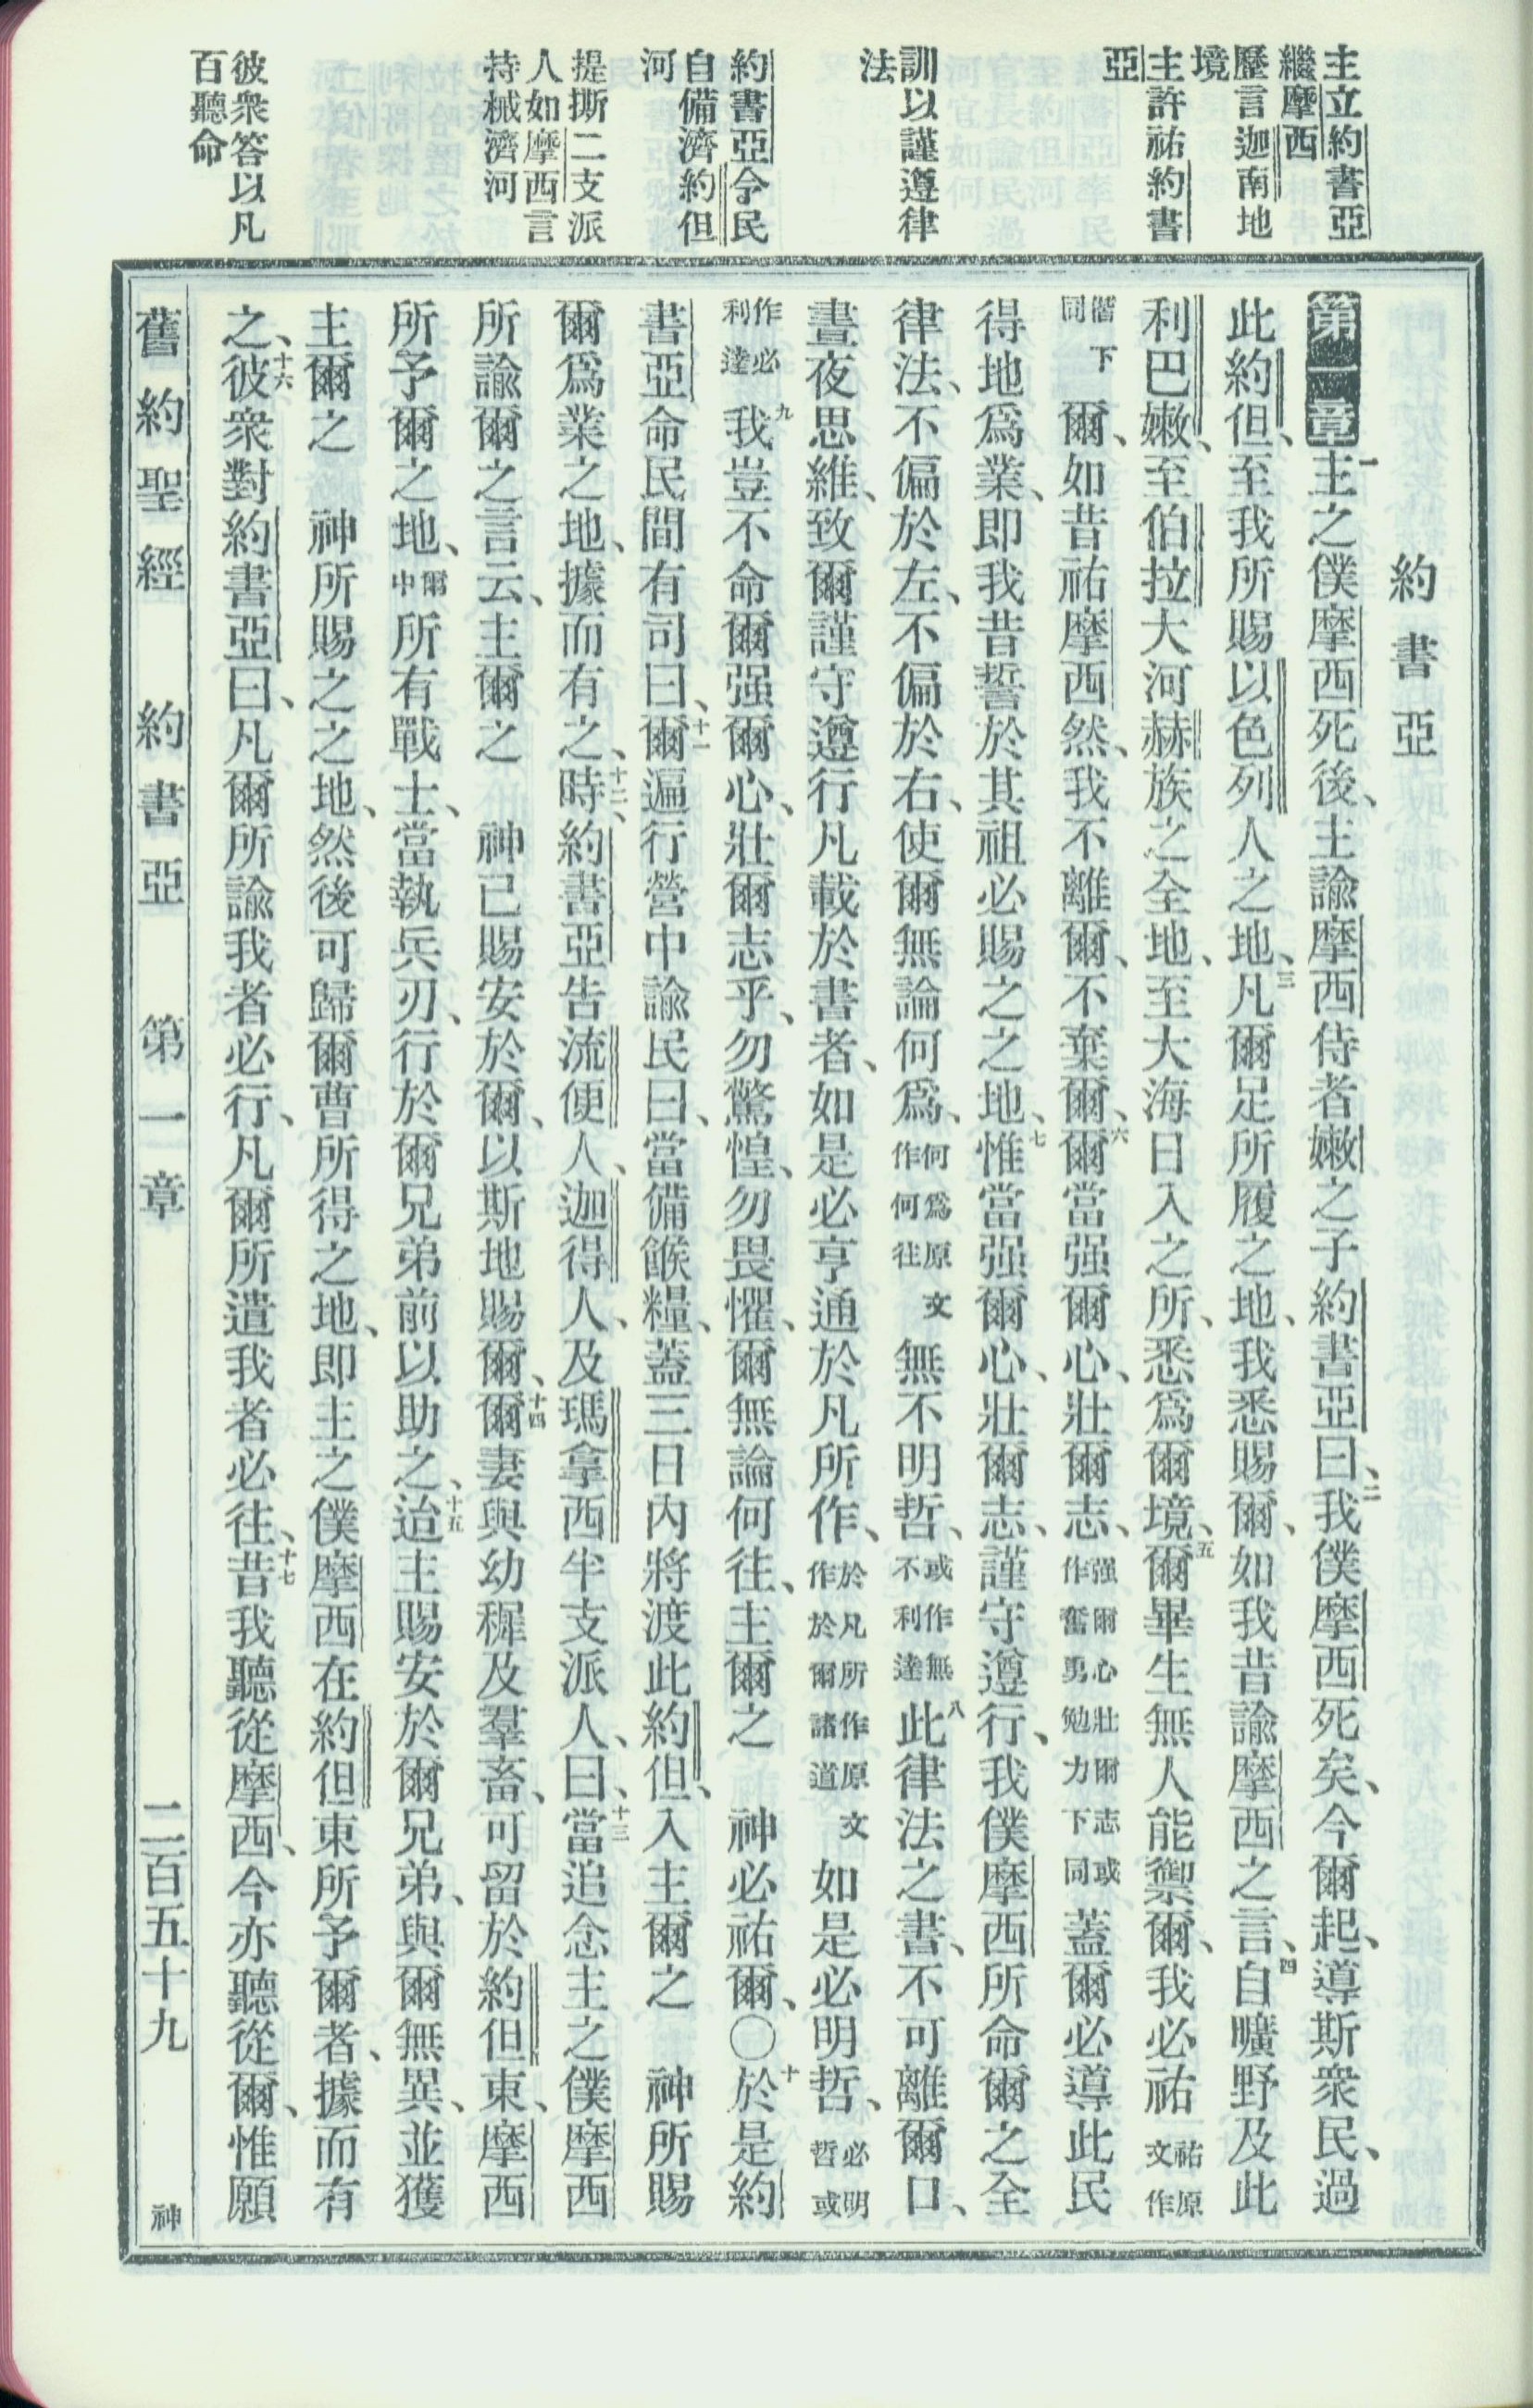 主立約書亞
繼摩西
歷言迦南地
境
主許祐約書
亞
訓以謹遵律
法
約書亞令民
自備濟約但
河
提撕二支派
人如摩西言
持械濟河
彼衆答以凡
百聽命
約書亞
第一章一主之僕摩西死後、主諭摩西侍者嫩之子約書亞曰、二我僕摩西死矣、今爾起、導斯衆民、過
此約但、至我所賜以色列人之地、三凡爾足所履之地、我悉賜爾、如我昔諭摩西之言、四自曠野及此
利巴嫩、至伯拉大河赫族之全地、至大海日入之所、悉爲爾境、五爾畢生無人能禦爾、我必祐祐原文作
偕下同爾、如昔祐摩西然、我不離爾、不棄爾、六爾當强爾心、壯爾志、强爾心壯爾志或作奮勇勉力下同蓋爾必導此民
得地爲業、即我昔誓於其祖必賜之之地、七惟當强爾心、壯爾志、謹守遵行、我僕摩西所命爾之全
律法、不偏於左、不偏於右、使爾無論何爲、何爲原文作何往無不明哲、或作無不利達八此律法之書、不可離爾口、
晝夜思維、致爾謹守遵行凡載於書者、如是必亨通於凡所作、於凡所作原文作於爾諸道如是必明哲、必明哲或
作必利達九我豈不命爾强爾心、壯爾志乎、勿驚惶、勿畏懼、爾無論何往、主爾之　神必祐爾、〇十於是約
書亞命民間有司曰、十一爾遍行營中諭民曰、當備餱糧、蓋三日內將渡此約但、入主爾之　神所賜
爾爲業之地、據而有之、十二時、約書亞告流便人、迦得人、及瑪拿西半支派人、曰、十三當追念主之僕摩西
所諭爾之言云、主爾之　神已賜安於爾、以斯地賜爾、十四爾妻與幼穉及羣畜、可留於約但東、摩西
所予爾之地、爾中所有戰士、當執兵刃、行於爾兄弟前以助之、十五迨主賜安於爾兄弟、與爾無異、並獲
主爾之　神所賜之之地、然後可歸爾曹所得之地、即主之僕摩西在約但東所予爾者、據而有
之、十六彼衆對約書亞曰、凡爾所諭我者必行、凡爾所遣我者必往、十七昔我聽從摩西、今亦聽從爾、惟願
舊約聖經　約書亞　第一章　二百五十九　神